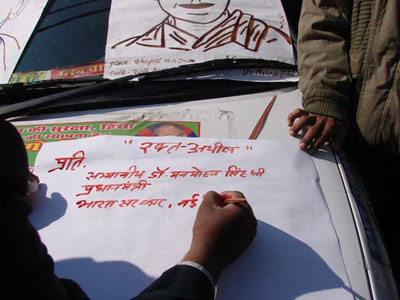 place. Bhopal
की सुरक्षा, हिंसा
की स्थापना
" रक्त-अपील "
प्रति,
सम्मानीय डॉ. मनमोहन सिंह जी
प्रधानमंत्री
भारत सरकार, नई